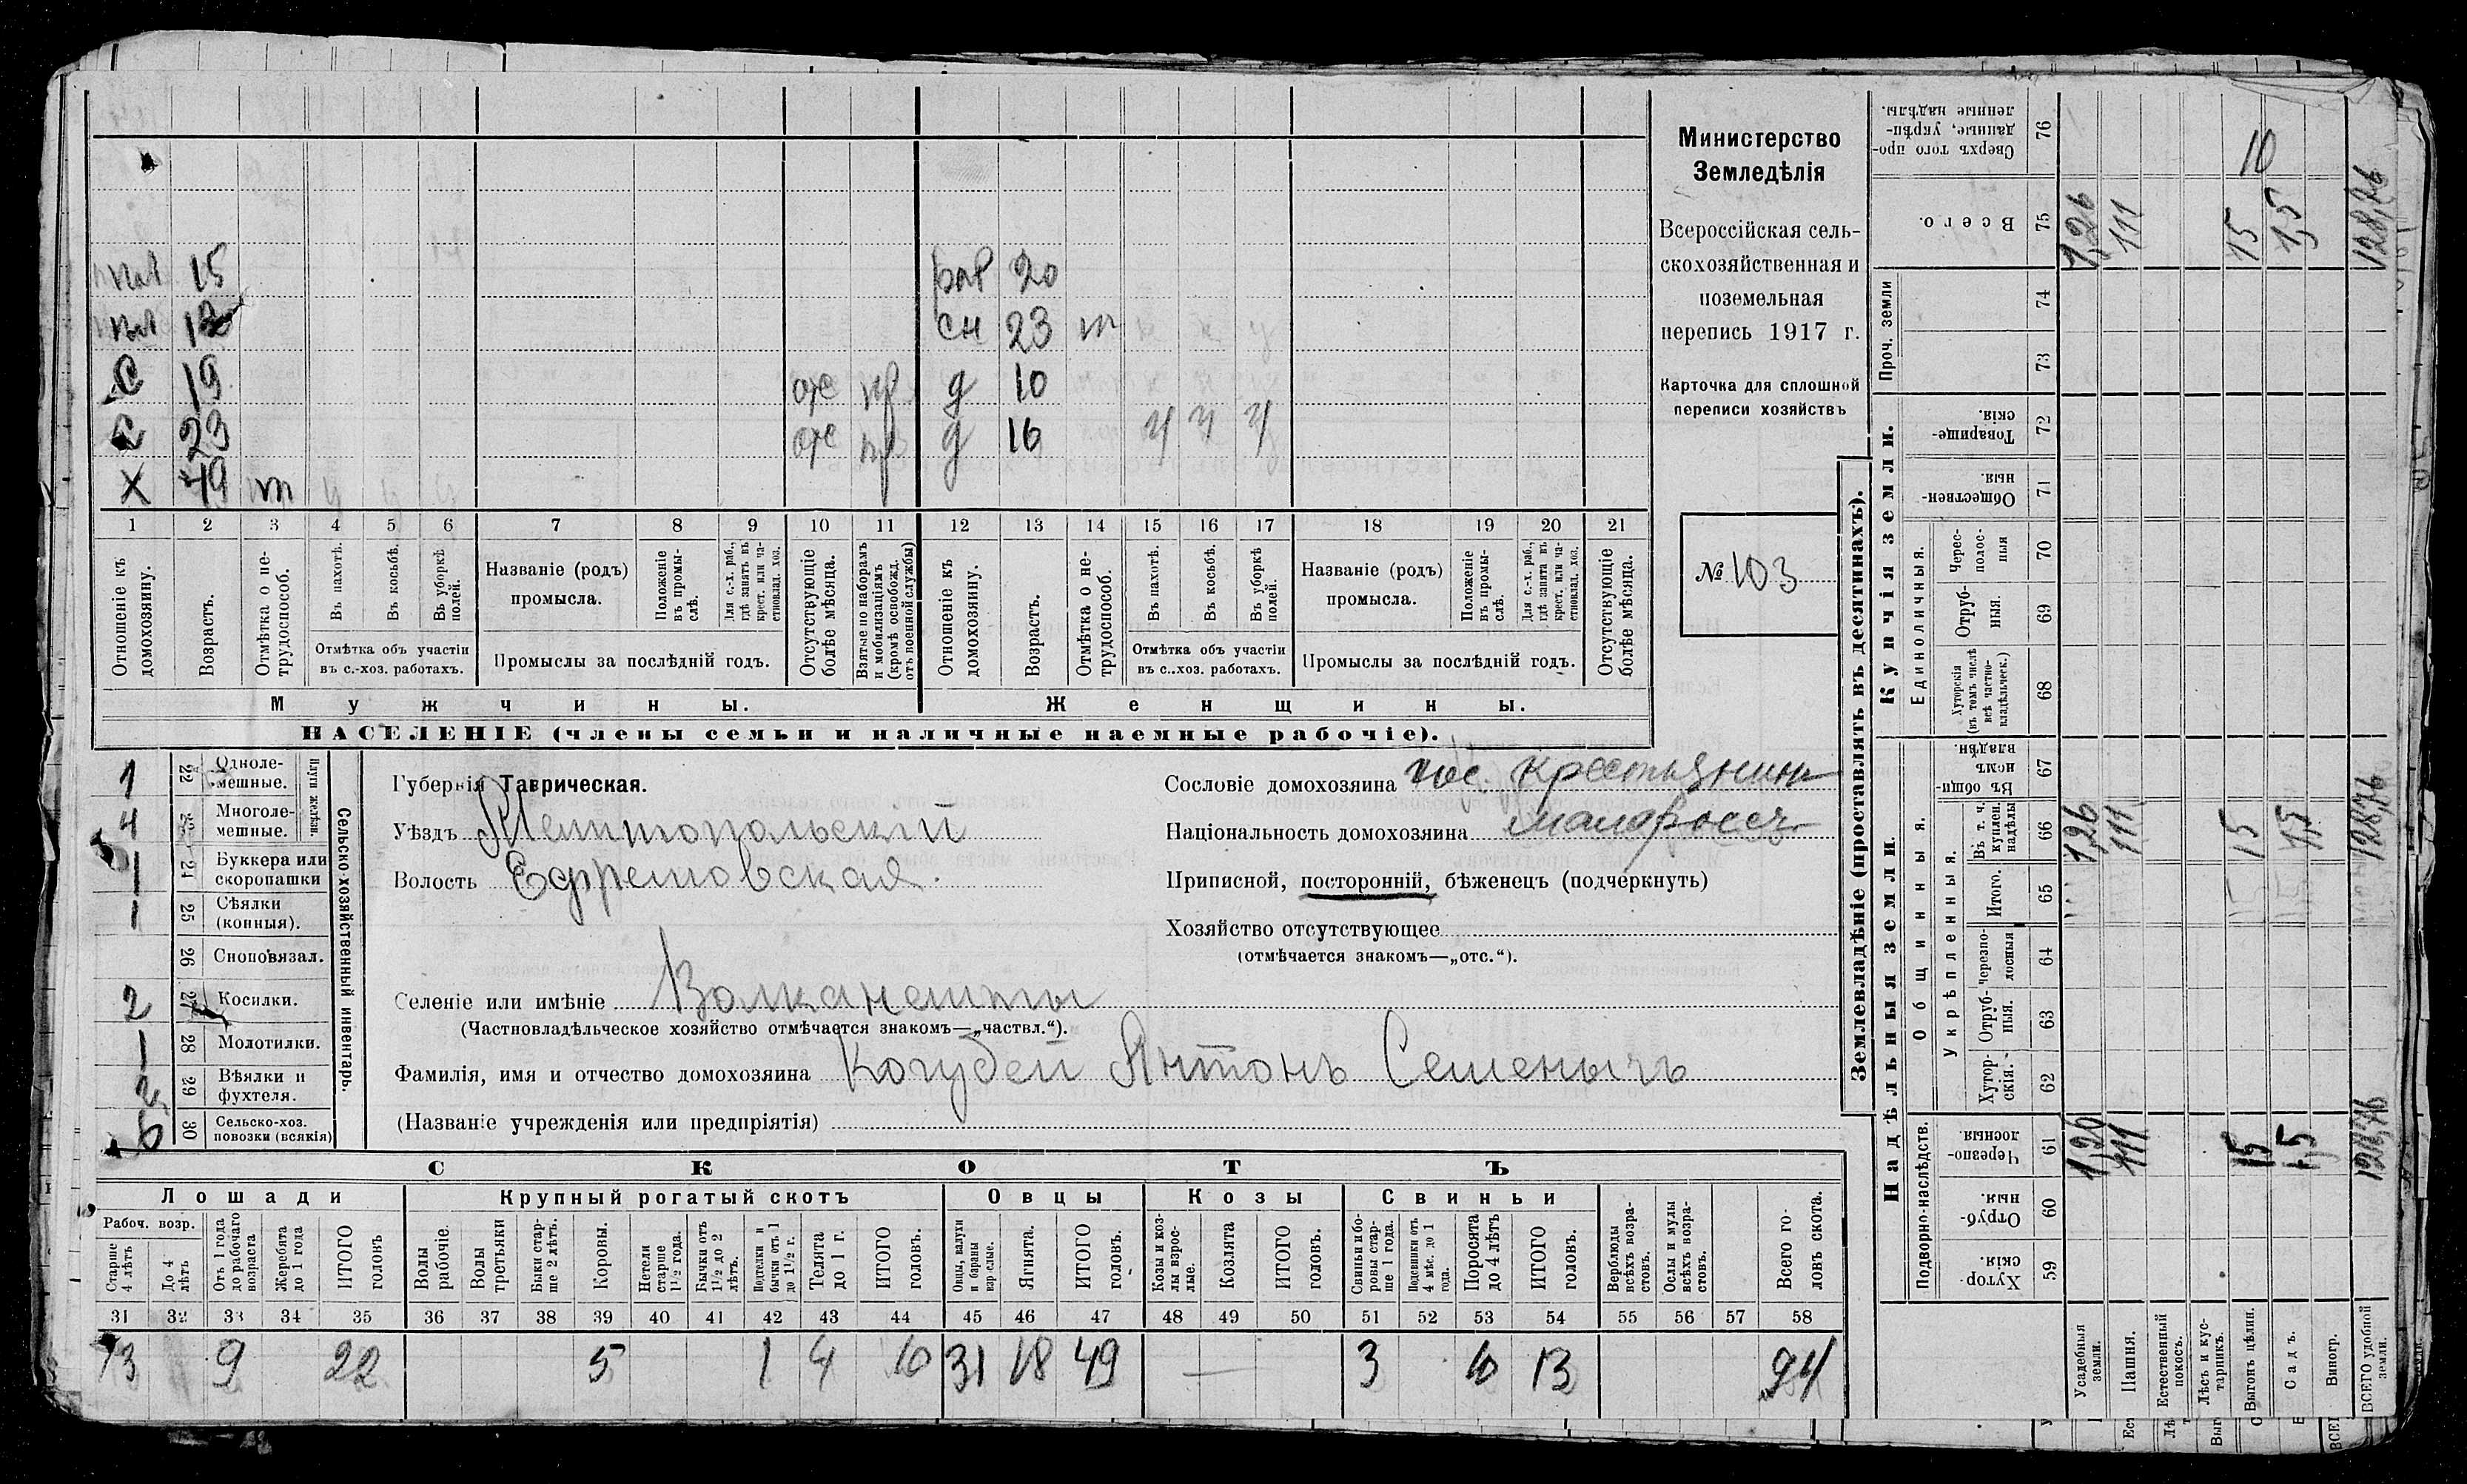 Министерство
Земледѣлія
Всероссійская сель-
скохозяйственная и
поземельная
перепись 1917 г.
Карточка для сплошной
переписи хозяйствъ
№ 103
15 20
сн 23 т
С 19 отс д 10
С 23 отс д 16 у у у
Х 49 т у у у
1 2 3 4 5 6 7 8 9 10 11 12 13 14 15 16 17 18 19 20 21
Отношеніе къ домохозяину.
Возрастъ.
Отмѣтка о не-трудоспособ.
Въ пахотѣ.
Въ косьбѣ.
Въ уборкѣ полей.
Отмѣтка объ участіи
въ с.-хоз. работахъ.
Названіе (родъ)
промысла.
Положеніе въ промы-слѣ.
Для с.-х. раб., гдѣ занятъ въ крест. или ча-стновлад. хоз.
Промыслы за послѣдній годъ.
Отсутствующіе болѣе мѣсяца.
Взятые по наборамъ и мобилизаціямъ (кромѣ освобожд. отъ военной службы)
Отношеніе къ домохозяину.
Возрастъ.
Отмѣтка о не-трудоспособ.
Въ пахотѣ.
Въ косьбѣ.
Въ уборкѣ полей.
Отмѣтка объ участіи
въ с.-хоз. работахъ.
Названіе (родъ)
промысла.
Положеніе въ промы-слѣ.
Для с.-х. раб., гдѣ занята въ крест. или ча-стновлад. хоз.
Промыслы за послѣдній годъ.
Отсутствующіе болѣе мѣсяца.
Мужчины. Женщины.
НАСЕЛЕНІЕ (члены семьи и наличные наемные рабочіе).
Сельско-хозяйственный инвентарь.
Плуги желѣзн.
1 22 Одноле-мешные.
4 23 Многоле-мешные.
1 24 Буккера или скоропашки
1 25 Сѣялки (конныя).
26 Сноповязал.
2 27 Косилки.
1 28 Молотилки.
2 29 Вѣялки и фухтеля.
6 30 Сельско-хоз. повозки (всякія)
Губернія Таврическая.
Уѣздъ Мелитопольскій
Волость Ефремовская.
Сословіе домохозяина пос. крестьянинъ
Національность домохозяина малороссъ
Приписной, посторонній, бѣженецъ (подчеркнуть)
Хозяйство отсутствующее
(отмѣчается знакомъ—„отс.“).
Селеніе или имѣніе Волканешты
(Частновладѣльческое хозяйство отмѣчается знакомъ—„частвл.“).
Фамилія, имя и отчество домохозяина Кочубей Антонъ Семенычъ
(Названіе учрежденія или предпріятія)
СКОТЪ
Лошади Крупный рогатый скотъ Овцы Козы Свиньи
Рабоч. возр.
Старше 4 лѣтъ
До 4 лѣтъ
Отъ 1 года до рабочаго возраста
Жеребята до 1 года
ИТОГО головъ
Волы рабочіе.
Волы третьяки
Быки стар-ше 2 лѣтъ.
Коровы.
Нетели старше 1½ года.
Бычки отъ 1½ до 2 лѣтъ.
Подтелки и бычки отъ 1 до 1½ г.
Телята до 1 г.
ИТОГО головъ.
Овцы, валухи и бараны взрослые.
Ягнята.
ИТОГО головъ.
Козы и коз-лы взрос-лые.
Козлята
ИТОГО головъ.
Свиньи и бо-ровы стар-ше 1 года.
Подсвинки отъ 4 мѣс. до 1 года.
Поросята до 4 лѣтъ
ИТОГО головъ.
Верблюды всѣхъ возра-стовъ.
Ослы и мулы всѣхъ возра-стовъ.
Всего го-ловъ скота.
31 32 33 34 35 36 37 38 39 40 41 42 43 44 45 46 47 48 49 50 51 52 53 54 55 56 57 58
13 9 22 5 1 4 10 31 18 49 — 3 10 13 94
Землевладѣніе (проставлять въ десятинахъ).
Надѣльныя земли. Купчія земли. Проч. земли
Подворно-наслѣдств. Общинныя. Укрѣпленныя. Единоличныя.
59 Хутор-скія.
60 Отруб-ныя.
61 Черезпо-лосныя
62 Хутор-скія.
63 Отруб-ныя.
64 Черезпо-лосныя
65 Итого.
66 Въ т. ч. куплен. надѣлы
67 Въ общи-номъ владѣн.
68 Хуторскія (въ томъ числѣ всѣ частно-владѣльческ.)
69 Отруб-ныя.
70 Черес-полос-ныя
71 Обществен-ныя.
72 Товарище-скія.
73
74
75 Всего.
76 Сверхъ того про-данные, укрѣп-ленные надѣлы.
Усадебныя земли. 1,26 1,26 1,26
Пашня. 111 111 111
Естественный покосъ.
Лѣсъ и кус-тарникъ.
Выгонъ цѣлин. 15 15 15 10
Садъ. 1,5 1,5 1,5
Виногр.
ВСЕГО удобной земли. 128,76 128,76 128,76